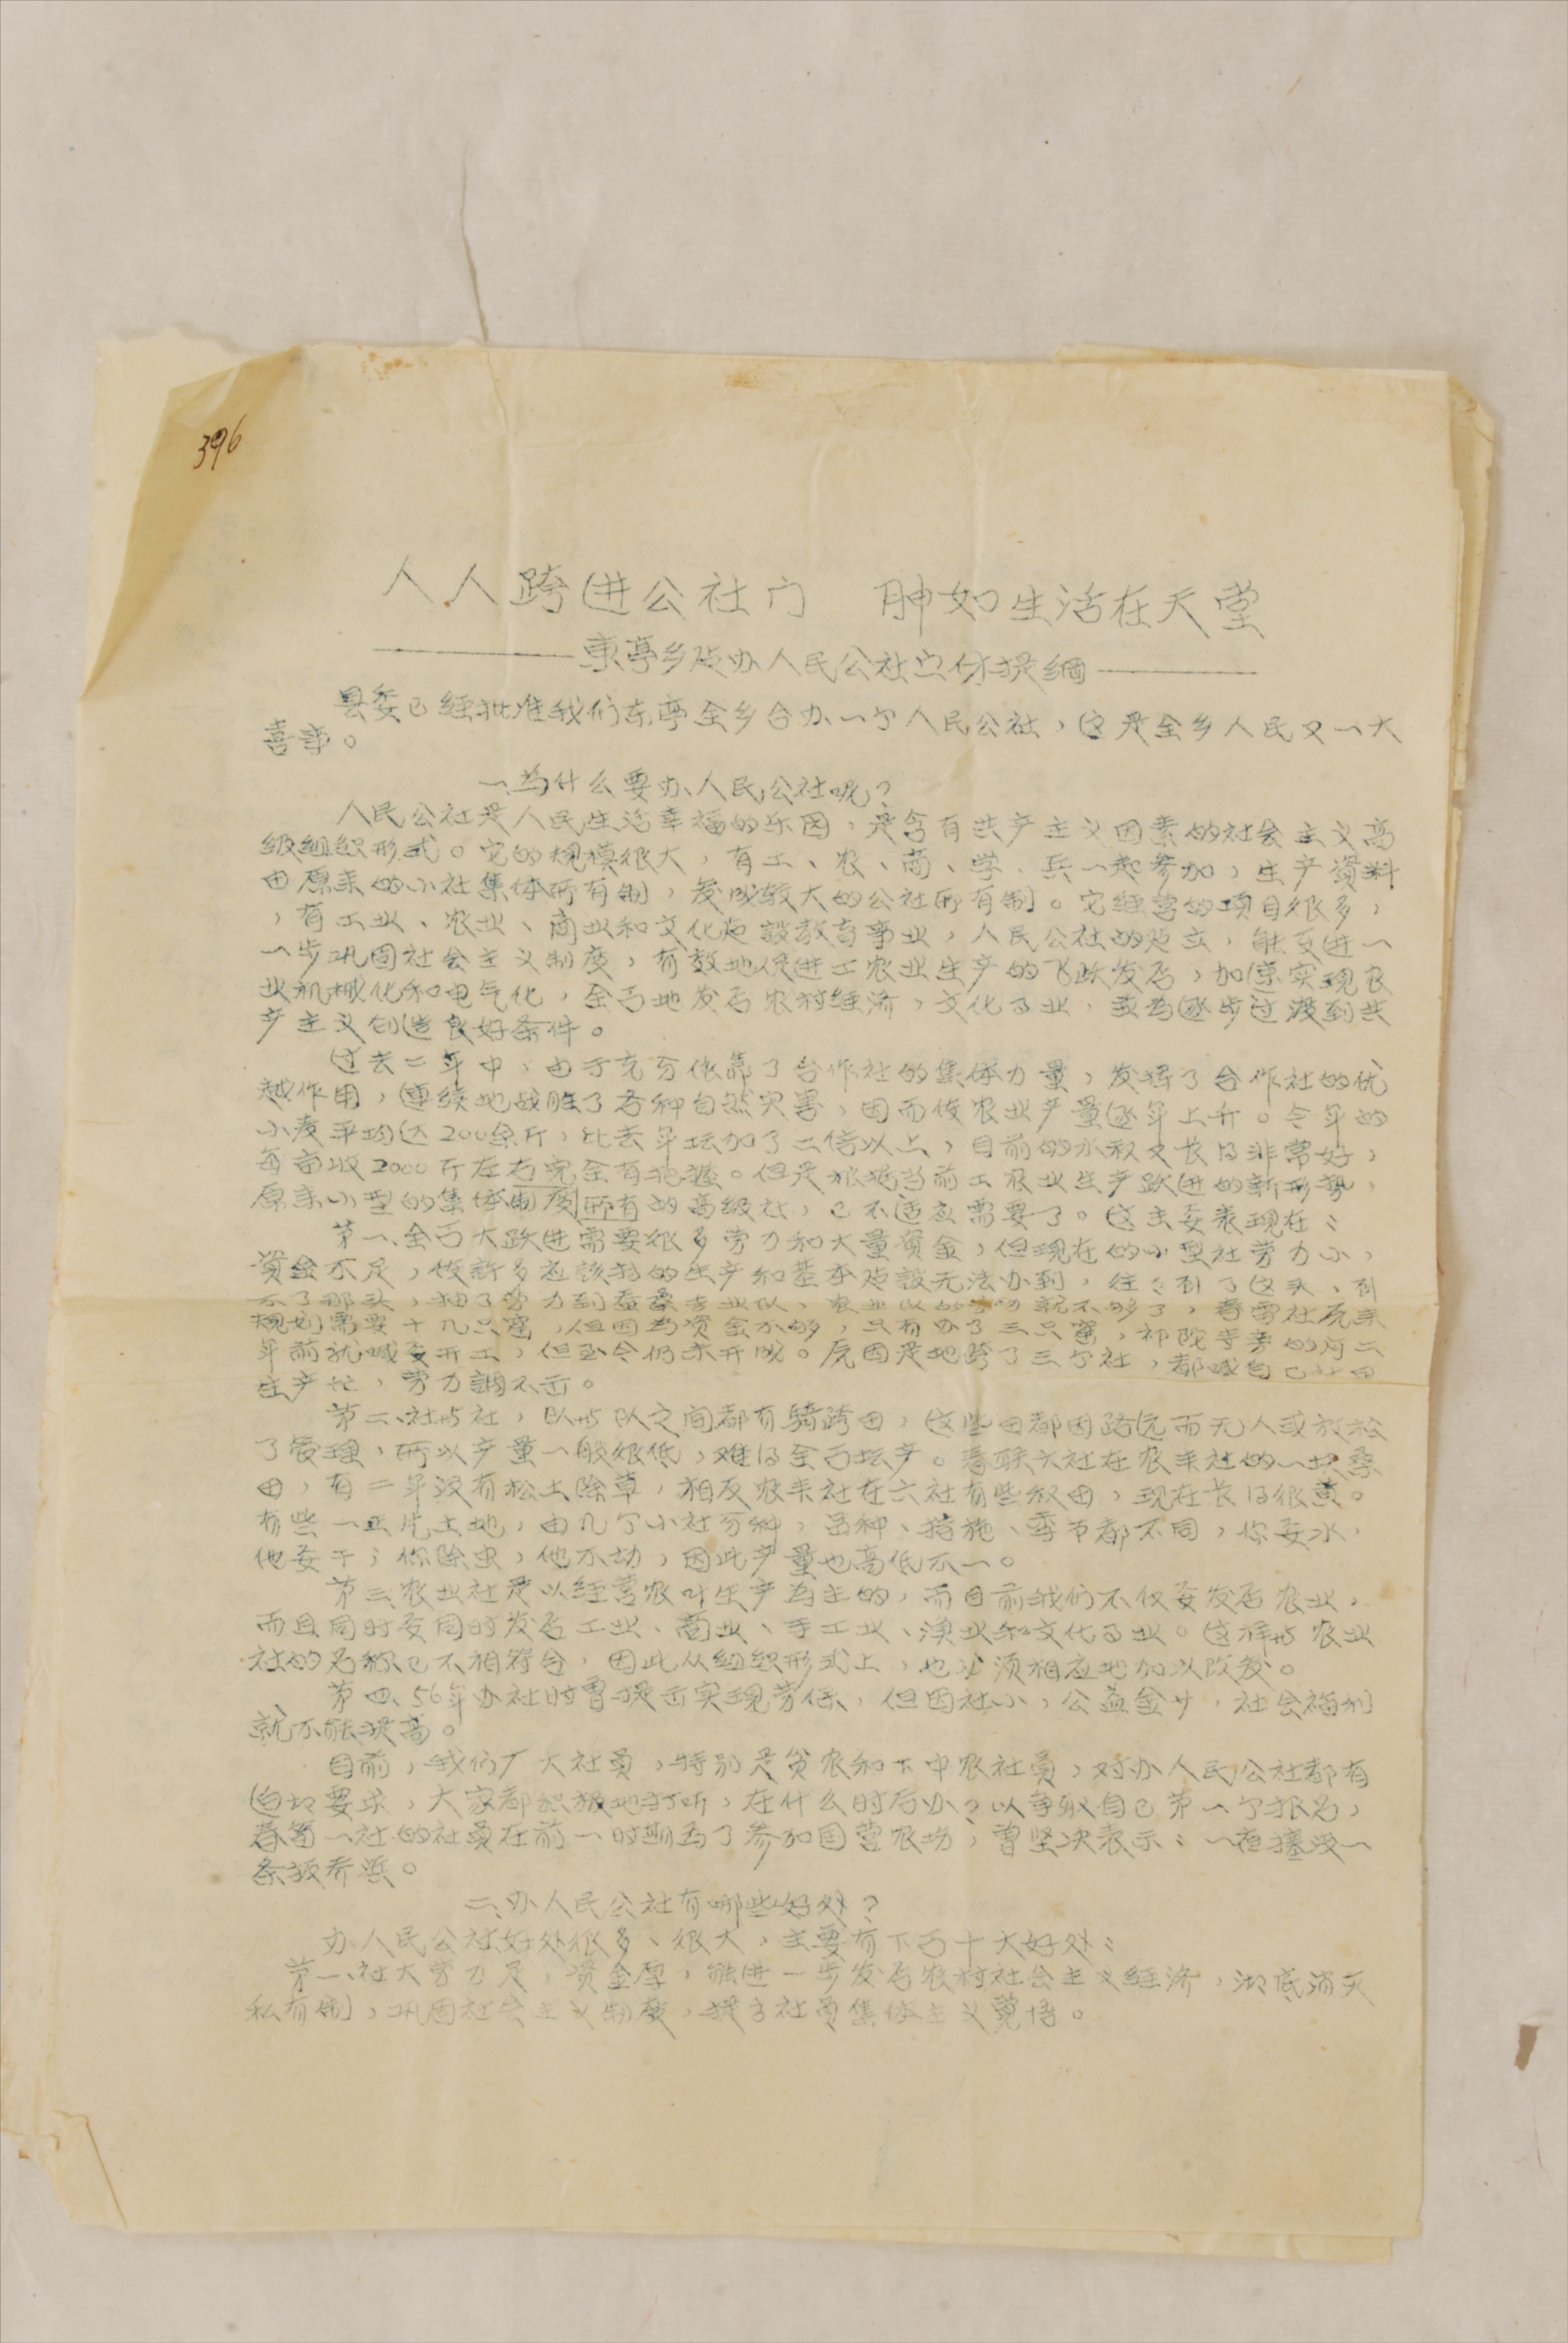 396
人人跨进公社门 胂如生活在天堂
——东亭乡建办人民公社宣传提纲——
县委已经批准我们东亭全乡合办一个人民公社，这是全乡人民又一大
喜事。
一、为什么要办人民公社呢？
人民公社是人民生活幸福的乐园，是含有共产主义因素的社会主义高
级组织形式。它的规模很大，有工、农、商、学、兵一起参加，生产资料
由原来的小社集体所有制，变成较大的公社所有制。它经营的项目很多，
，有工业、农业、商业和文化建设教育事业，人民公社的建立，能更进一
一步巩固社会主义制度，有效地促进工农业生产的飞跃发展，加速实现农
业机械化和电气化，全面地发展农村经济，文化事业，并为逐步过渡到共
产主义创造良好条件。
过去二年中，由于充分依靠了合作社的集体力量，发挥了合作社的优
越作用，连续地战胜了各种自然灾害，因而使农业产量逐年上升。今年的
小麦平均达200余斤，比去年增加了二倍以上，目前的水稻又长得非常好，
每亩收2000斤左右完全有把握。但是根据当前工农业生产跃进的新形势，
原来小型的集体制度所有的高级社，已不适应需要了。这主要表现在：
第一、全面大跃进需要很多劳力和大量资金，但现在的小型社劳力小，
资金不足，使许多应该搞的生产和基本建设无法办到，往往到了这头，到
不了那头，抽了劳力到蚕桑专业队，农业队的劳力就不够了，春雷社原来
规划需要十几只窑，但因为资金不够，只有办了三只窑，祁陀寺旁的河二
年前就喊要开工，但至今仍未开成。原因是地跨了三个社，都喊自己社里
生产忙，劳力调不出。
第二、社与社，队与队之间都有骑跨田，这些田都因路远而无人或放松
了管理，所以产量一般很低，难得全面增产。春联六社在农来社的一块桑
田，有二年没有松土除草，相反农来社在六社有些稻田，现在长得很黄。
有些一正片土地，由几个小社分种，品种、措施、季节都不同，你要水，
他要干；你除虫，他不动，因此产量也高低不一。
第三、农业社是以经营农叶生产为主的，而目前我们不仅要发展农业，
而且同时要同时发展工业、商业、手工业、渔业和文化事业。这样与农业
社的名称已不相符合，因此从组织形式上，也必须相应地加以改变。
第四、56年办社时曾提出实现劳保，但因社小，公益金少，社会福利
就不能提高。
目前，我们广大社员，特别是贫农和下中农社员，对办人民公社都有
迫切要求，大家都积极地打听，在什么时后办？以争取自己第一个报名，
春笋一社的社员在前一时期为了参加国营农场，曾坚决表示：一夜搓没一
条板桥浜。
二、办人民公社有哪些好处？
办人民公社好处很多、很大，主要有下面十大好处：
第一、社大劳力足，资金厚，能进一步发展农村社会主义经济，彻底消灭
私有制，巩固社会主义制度，提高社员集体主义觉悟。